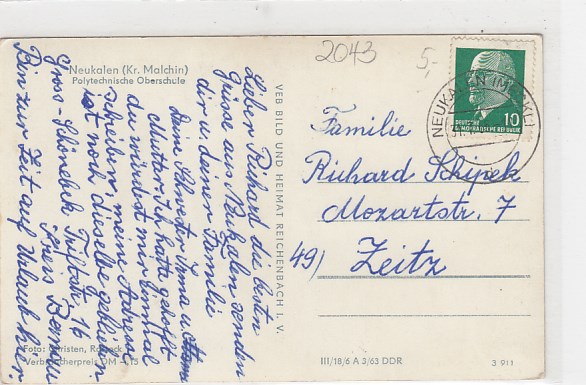 2043
5,-
Neukalen (Kr. Malchin)
Polytechnische Oberschule
Lieber Richard du besten
Grüsse aus Neukalen senden
dir u deiner Familie
dein Schwester Irma u
Mutter. Ich hatte gehofft
du würdest mir einmal
schreiben meine Adresse
ist noch dieselbe geblieben.
Gross Schönebeck 16
Kreis Bernau
Bin zur Zeit auf Urlaub hier.
Foto: Christen,
Verbraucherpreis DM -,15
VEB BILD UND HEIMAT REICHENBACH I. V.
DEUTSCHE
DEMOKRATISCHE REPUBLIK
10
NEUKALEN
Familie
Richard Schypek
Mozartstr. 7
49) Zeitz
III/18/6 A 3/63 DDR
3 911